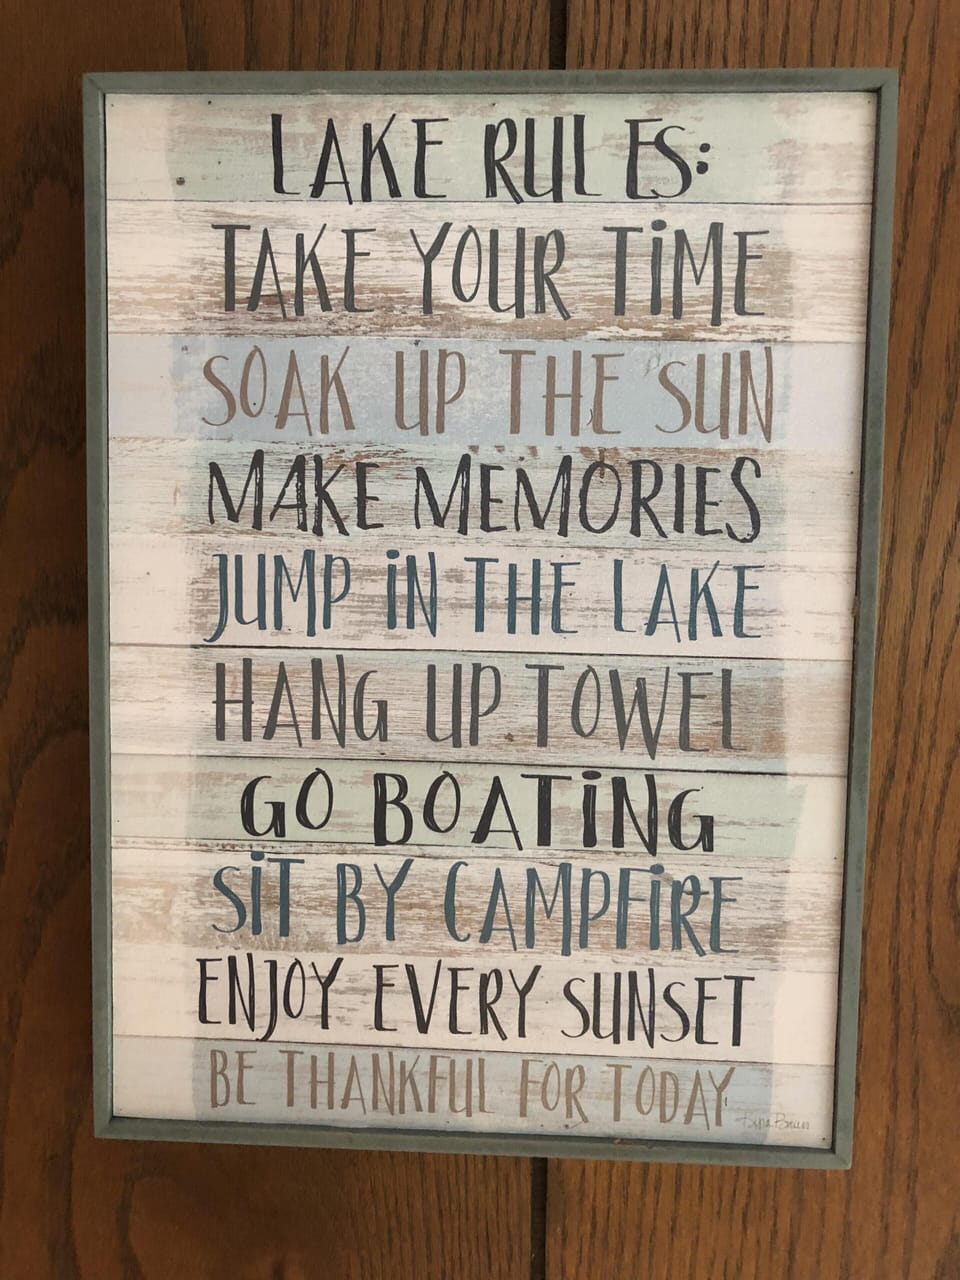 LAKE RULES:
TAKE YOUR TiME
SOAK UP THE SUN
MAKE MEMORIES
JUMP iN THE LAKE
HANG UP TOWEL
GO BOATiNG
SiT BY CAMPFiRE
ENJOY EVERY SUNSET
BE THANKFUL FOR TODAY